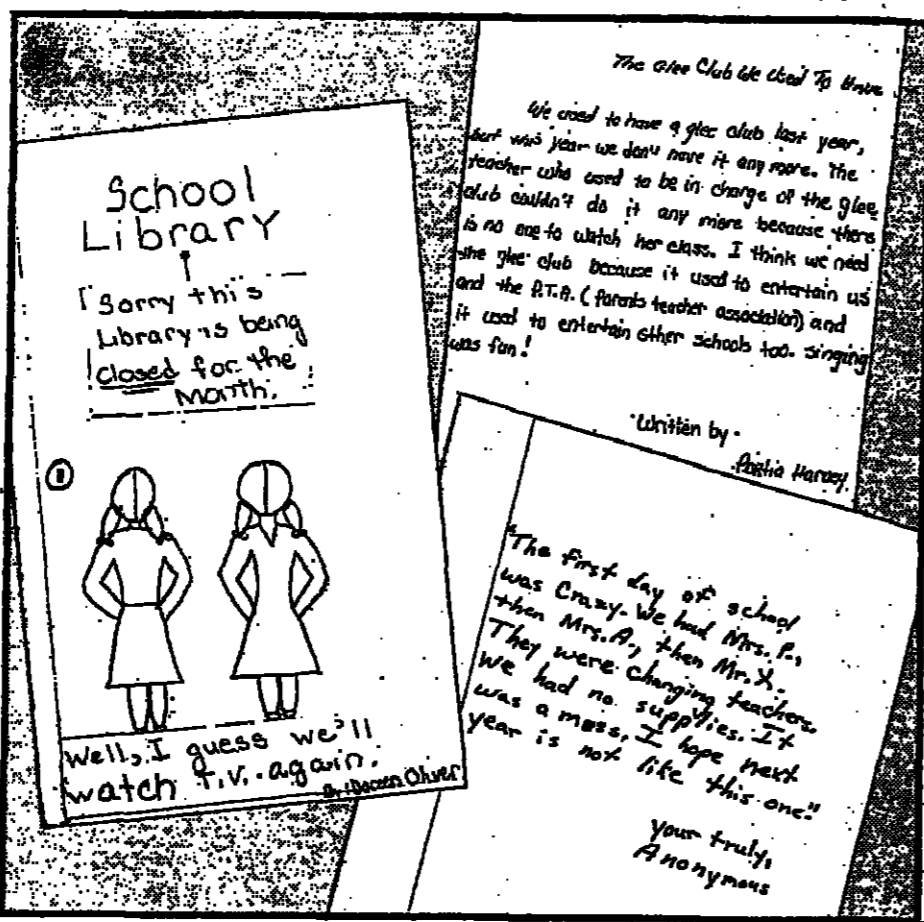 School
Library
Sorry this
Library is being
closed for the
Month.
1
Well, I guess we'll
watch t.v. again.
By: Doreen Oliver
The Glee Club We Used To Have
We used to have a glee club last year,
but this year we don't have it any more. The
teacher who used to be in charge of the glee
club couldn't do it any more because there
is no one to watch her class. I think we need
the glee club because it used to entertain us
and the P.T.A. (parents teacher association) and
it used to entertain other schools too. Singing
was fun!
Written by
Portia Harvey
"The first day of school
was Crazy. We had Mrs. P.,
then Mrs. A., then Mr. X.
They were changing teachers.
We had no supplies. It
was a mess. I hope next
year is not like this one."
your truly,
Anonymous